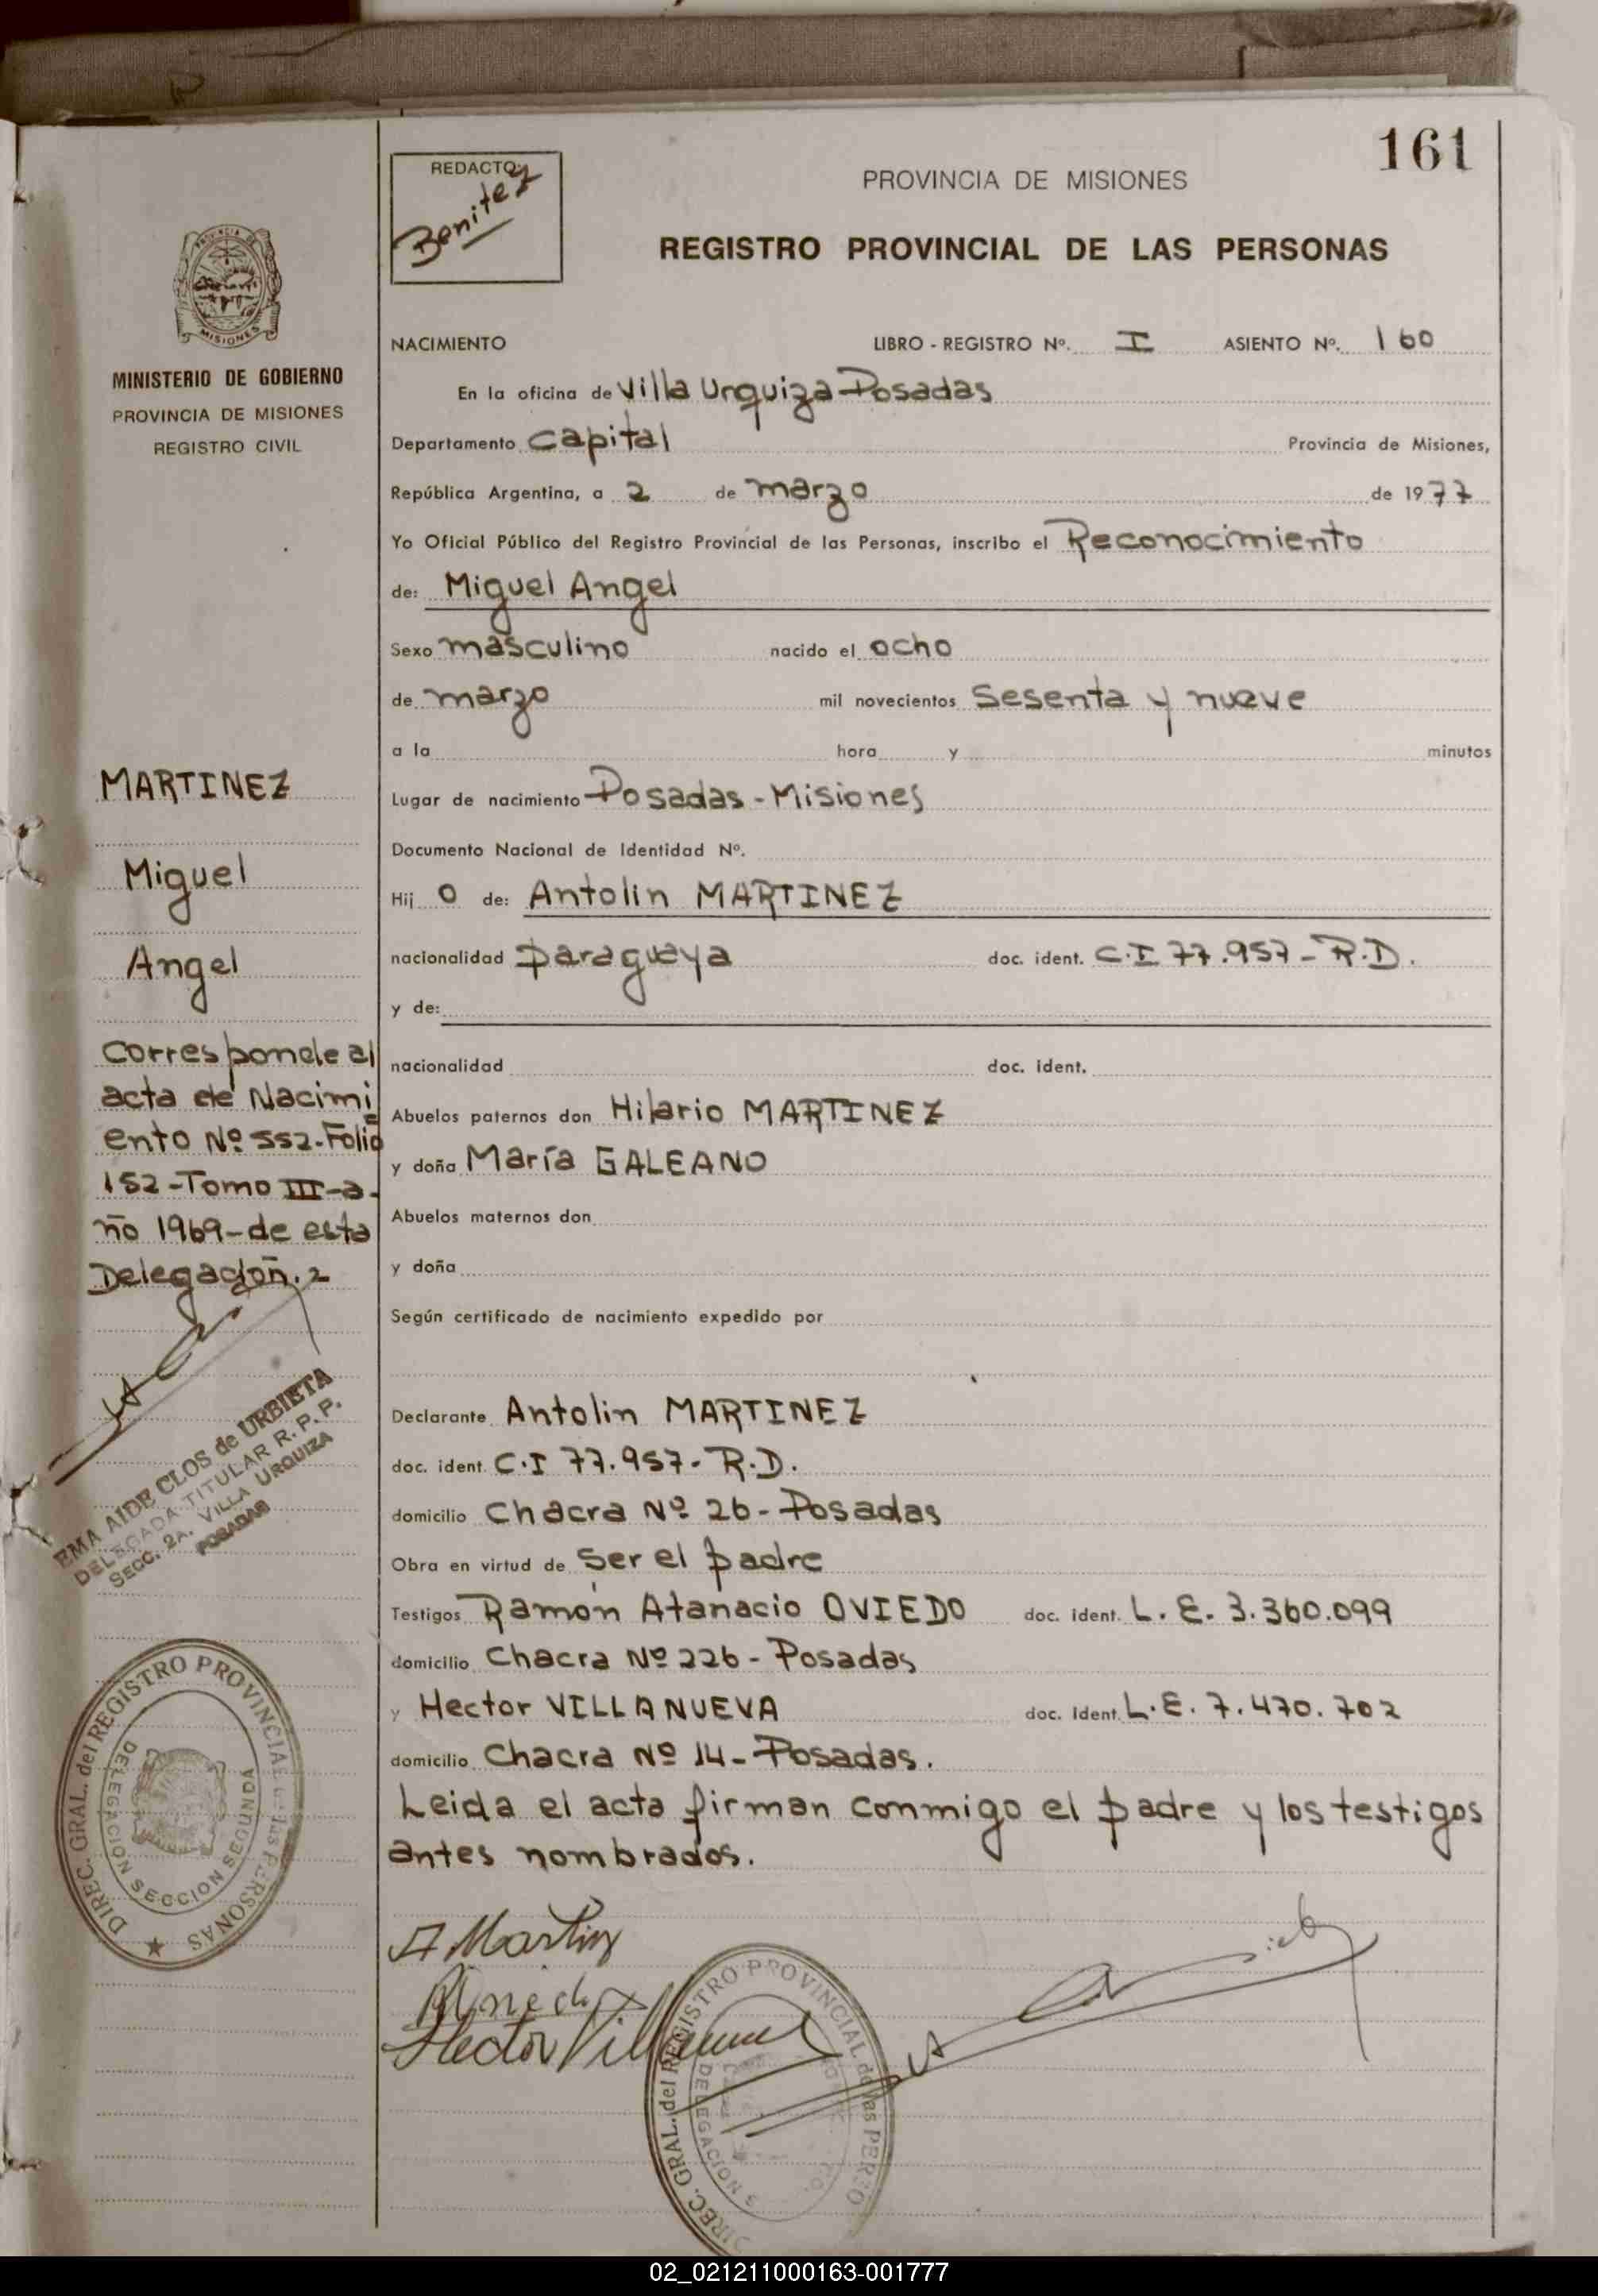 161
REDACTO:
Benitez
PROVINCIA DE MISIONES
REGISTRO PROVINCIAL DE LAS PERSONAS
PROVINCIA DE
MISIONES
MINISTERIO DE GOBIERNO
PROVINCIA DE MISIONES
REGISTRO CIVIL
MARTINEZ
Miguel
Angel
Corresponde al
acta de Nacimi
ento Nº 552-Folio
152-Tomo III-a-
ño 1969-de esta
Delegación.
EMA AIDE CLOS de URBIETA
DELEGADA TITULAR R. P. P.
SECC. 2A. VILLA URQUIZA
POSADAS
DIREC. GRAL. del REGISTRO PROVINCIAL de las PERSONAS
DELEGACION SECCION SEGUNDA
NACIMIENTO LIBRO - REGISTRO Nº. I ASIENTO Nº. 160
En la oficina de Villa Urquiza-Posadas
Departamento Capital Provincia de Misiones,
República Argentina, a 2 de marzo de 1977
Yo Oficial Público del Registro Provincial de las Personas, inscribo el Reconocimiento
de: Miguel Angel
Sexo masculino nacido el ocho
de marzo mil novecientos sesenta y nueve
a la hora y minutos
Lugar de nacimiento Posadas-Misiones
Documento Nacional de Identidad Nº.
Hij o de: Antolin MARTINEZ
nacionalidad paraguaya doc. ident. C.I 77.957-R.D.
y de:
nacionalidad doc. ident.
Abuelos paternos don Hilario MARTINEZ
y doña María GALEANO
Abuelos maternos don
y doña
Según certificado de nacimiento expedido por
Declarante Antolin MARTINEZ
doc. ident. C.I 77.957-R.D.
domicilio Chacra Nº 26-Posadas
Obra en virtud de ser el padre
Testigos Ramón Atanacio OVIEDO doc. ident. L.E. 3.360.099
domicilio Chacra Nº 226-Posadas
y Hector VILLANUEVA doc. ident. L.E. 7.470.702
domicilio Chacra Nº 14-Posadas.
Leida el acta firman conmigo el padre y los testigos
antes nombrados.
A Martinz
Hector Villanueva
DIREC. GRAL. del REGISTRO PROVINCIAL de las PERSO
DELEGACION S
02_021211000163-001777